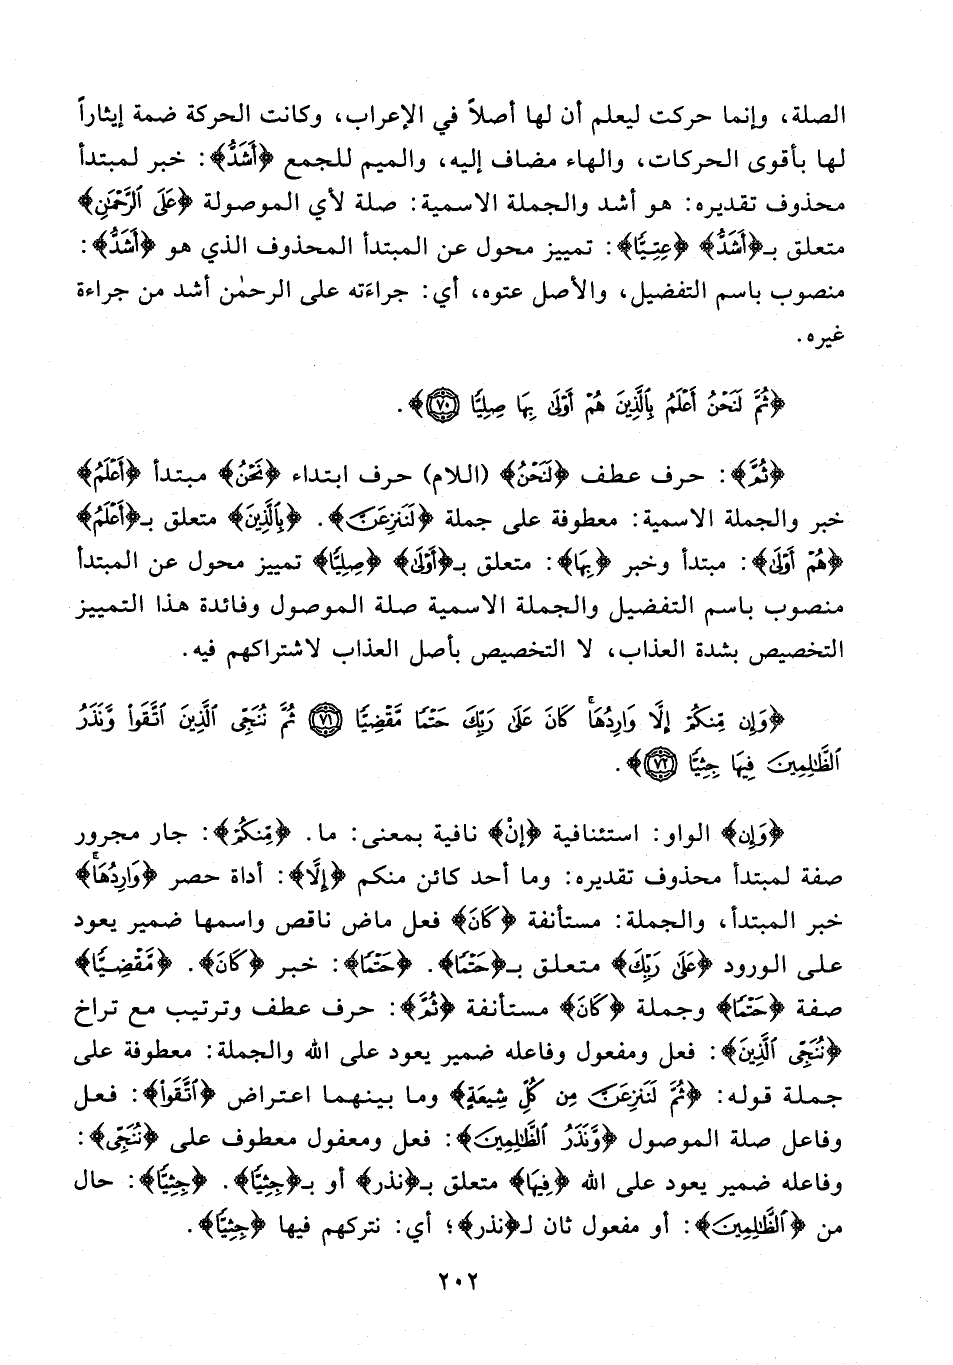 الصلة، وإنما حركت ليعلم أن لها أصلاً في الإعراب، وكانت الحركة ضمة إيثاراً
لها بأقوى الحركات، والهاء مضاف إليه، والميم للجمع ﴿أَشَدُّ﴾: خبر لمبتدأ
محذوف تقديره: هو أشد والجملة الاسمية: صلة لأي الموصولة ﴿عَلَى ٱلرَّحْمَٰنِ﴾
متعلق بـ﴿أَشَدُّ﴾ ﴿عِتِيًّا﴾: تمييز محول عن المبتدأ المحذوف الذي هو ﴿أَشَدُّ﴾:
منصوب باسم التفضيل، والأصل عتوه، أي: جراءَته على الرحمٰن أشد من جراءة
غيره.
﴿ثُمَّ لَنَحْنُ أَعْلَمُ بِٱلَّذِينَ هُمْ أَوْلَىٰ بِهَا صِلِيًّا ٧٠﴾.
﴿ثُمَّ﴾: حرف عطف ﴿لَنَحْنُ﴾ (اللام) حرف ابتداء ﴿نَحْنُ﴾ مبتدأ ﴿أَعْلَمُ﴾
خبر والجملة الاسمية: معطوفة على جملة ﴿لَنَنزِعَنَّ﴾. ﴿بِٱلَّذِينَ﴾ متعلق بـ﴿أَعْلَمُ﴾
﴿هُمْ أَوْلَىٰ﴾: مبتدأ وخبر ﴿بِهَا﴾: متعلق بـ﴿أَوْلَىٰ﴾ ﴿صِلِيًّا﴾ تمييز محول عن المبتدأ
منصوب باسم التفضيل والجملة الاسمية صلة الموصول وفائدة هذا التمييز
التخصيص بشدة العذاب، لا التخصيص بأصل العذاب لاشتراكهم فيه.
﴿وَإِن مِّنكُمْ إِلَّا وَارِدُهَا ۚ كَانَ عَلَىٰ رَبِّكَ حَتْمًا مَّقْضِيًّا ٧١ ثُمَّ نُنَجِّى ٱلَّذِينَ ٱتَّقَوا۟ وَّنَذَرُ
ٱلظَّـٰلِمِينَ فِيهَا جِثِيًّا ٧٢﴾.
﴿وَإِن﴾ الواو: استئنافية ﴿إِنْ﴾ نافية بمعنى: ما. ﴿مِّنكُمْ﴾: جار مجرور
صفة لمبتدأ محذوف تقديره: وما أحد كائن منكم ﴿إِلَّا﴾: أداة حصر ﴿وَارِدُهَا ۚ﴾
خبر المبتدأ، والجملة: مستأنفة ﴿كَانَ﴾ فعل ماض ناقص واسمها ضمير يعود
على الورود ﴿عَلَىٰ رَبِّكَ﴾ متعلق بـ﴿حَتْمًا﴾. ﴿حَتْمًا﴾: خبر ﴿كَانَ﴾. ﴿مَّقْضِيًّا﴾
صفة ﴿حَتْمًا﴾ وجملة ﴿كَانَ﴾ مستأنفة ﴿ثُمَّ﴾: حرف عطف وترتيب مع تراخ
﴿نُنَجِّى ٱلَّذِينَ﴾: فعل ومفعول وفاعله ضمير يعود على الله والجملة: معطوفة على
جملة قوله: ﴿ثُمَّ لَنَنزِعَنَّ مِن كُلِّ شِيعَةٍ﴾ وما بينهما اعتراض ﴿ٱتَّقَوا۟﴾: فعل
وفاعل صلة الموصول ﴿وَّنَذَرُ ٱلظَّـٰلِمِينَ﴾: فعل ومعفول معطوف على ﴿نُنَجِّى﴾:
وفاعله ضمير يعود على الله ﴿فِيهَا﴾ متعلق بـ﴿نذر﴾ أو بـ﴿جِثِيًّا﴾. ﴿جِثِيًّا﴾: حال
من ﴿ٱلظَّـٰلِمِينَ﴾: أو مفعول ثان لـ﴿نذر﴾؛ أي: نتركهم فيها ﴿جِثِيًّا﴾.
٢٠٢